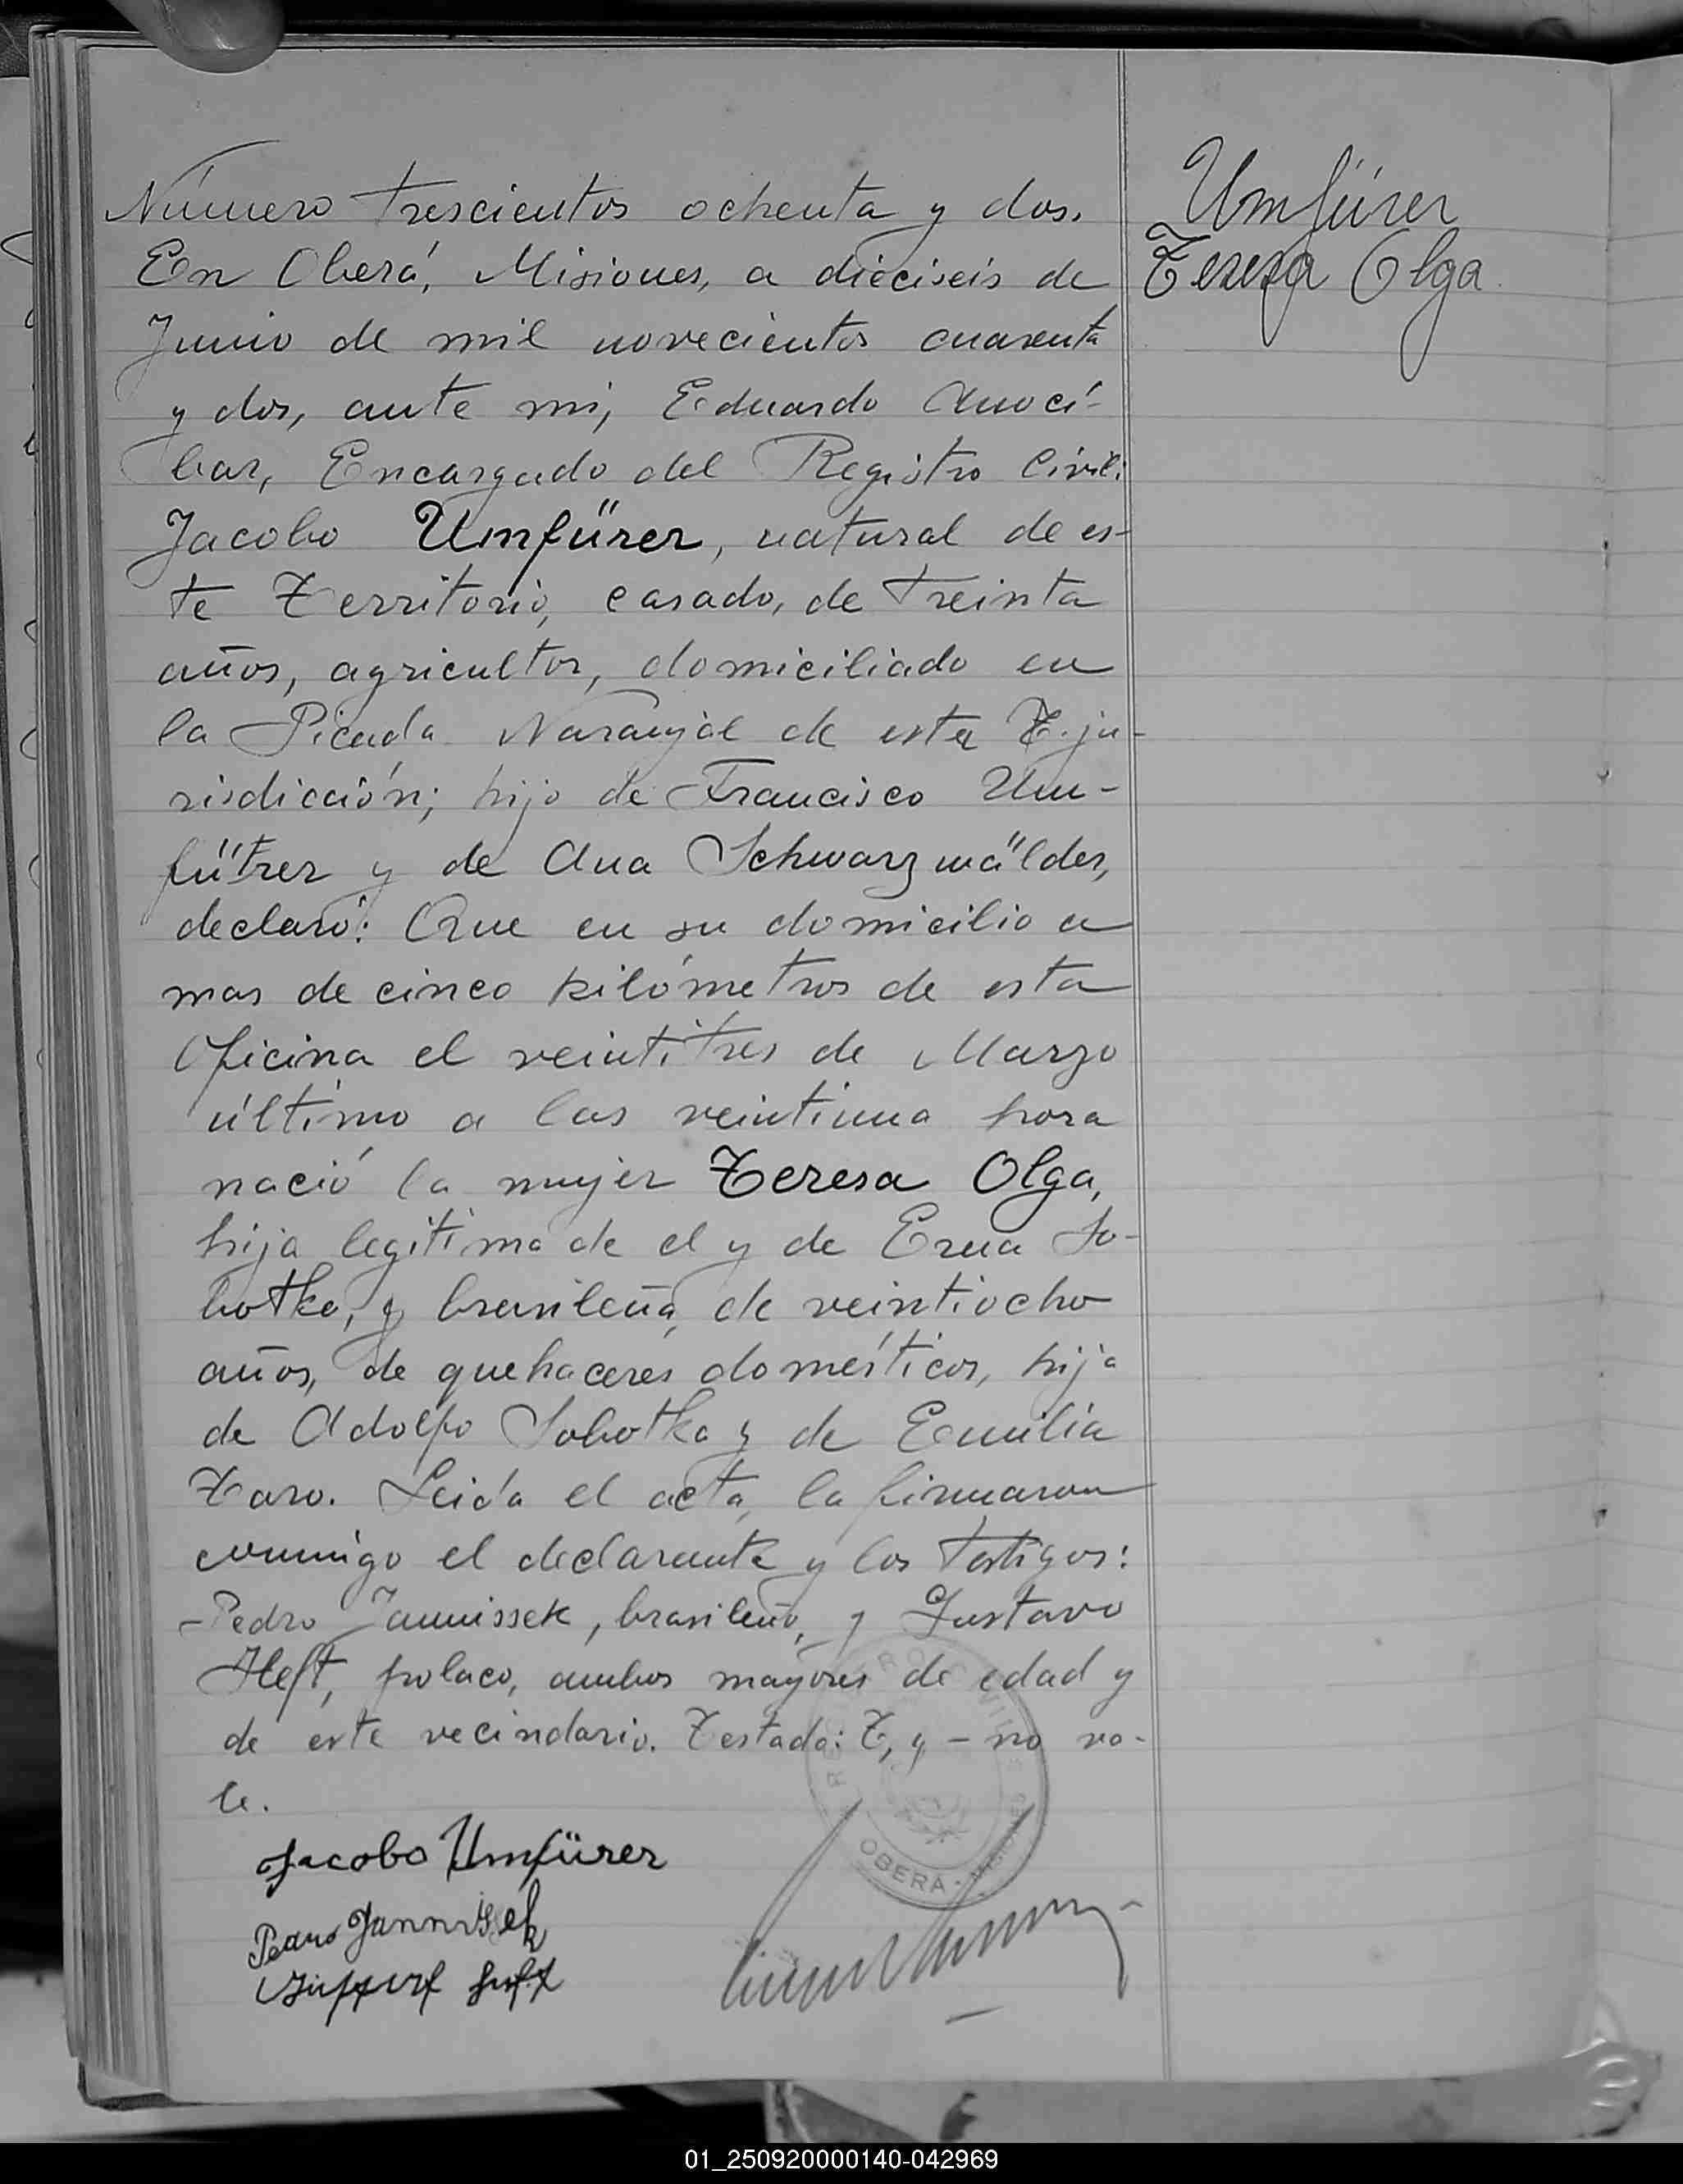 Número trescientos ochenta y dos.
En Oberá, Misiones, a dieciseis de
Junio de mil novecientos cuarenta
y dos, ante mi, Eduardo Anocí-
bar, Encargado del Registro Civil:
Jacobo Umfürer, natural de es-
te Territorio, casado, de treinta
años, agricultor, domiciliado en
la Picada Naranjal de esta T. ju-
risdicción; hijo de Francisco Um-
fürer y de Ana Schwarzwälder,
declaró: Que en su domicilio a
mas de cinco kilómetros de esta
Oficina el veintitres de Marzo
último a las veintiuna hora
nació la mujer Teresa Olga,
hija legitima de el y de Erna So-
botka, y brasileña, de veintiocho
años, de quehaceres domésticos, hija
de Adolfo Sobotka y de Emilia
Zaro. Leida el acta, la firmaron
conmigo el declarante y los testigos:
Pedro Jannissek, brasileño, y Gustavo
Heft, polaco, ambos mayores de edad y
de este vecindario. Testado: T, y - no va-
le.
Jacobo Umfürer
Pedro Jannisek
Umfürer
Teresa Olga
OBERA - MISIONES
01_250920000140-042969